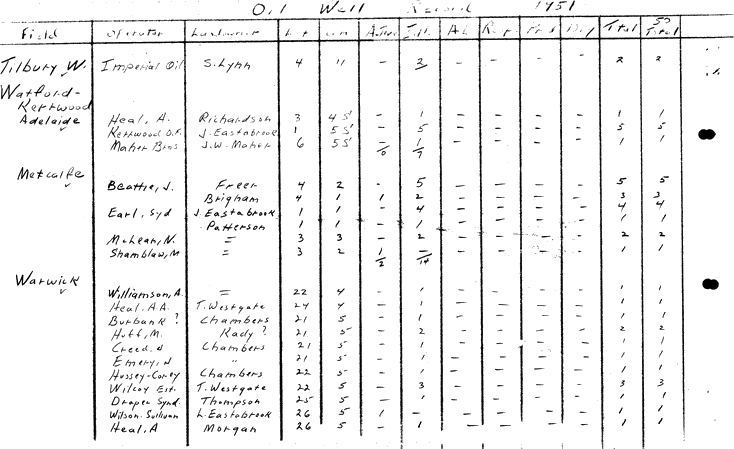 Oil Well Record 1951
Field Operator Landowner Lot Con Total 50 Total
Tilbury W. Imperial Oil S. Lynn 4 11 - 2 - - - - 2 2
Watford-
Kerrwood
Adelaide Heal, A. Richardson 3 4 S' - 1 - - - - 1 1
Kerrwood O.F. J. Eastabrook 1 5 S' - 5 - - - - 5 5
Maher Bros J.W. Maher 6 5 S' - 1 - - - - 1 1
0 7
Metcalfe
Beattie, J. Freer 4 2 - 5 - - - - 5 5
Brigham 4 1 1 2 - - - - 3 3
Earl, Syd J. Eastabrook 1 1 - 4 - - - - 4 4
Patterson 1 1 - 1 - - - - 1 1
McLean, N. = 3 3 - 2 - - - - 2 2
Shamblaw, M = 3 2 1 - - - - - 1 1
2 14
Warwick
Williamson, A. = 22 4 - 1 - - - - 1 1
Heal, A.A. T. Westgate 24 4 - 1 - - - - 1 1
Burbank ? Chambers 21 5 - 1 - - - - 1 1
Huff, M. Rady ? 21 5 - 2 - - - - 2 2
Creed, N Chambers 21 5 - 1 - - - - 1 1
Emery, N " 21 5 - 1 - - - - 1 1
Hussey-Corey Chambers 22 5 - 1 - - - - 1 1
Wilcoy Est. T. Westgate 22 5 - 3 - - - - 3 3
Draper Synd. Thompson 25 5 - 1 - - - - 1 1
Wilson-Sullivan L. Eastabrook 26 5 1 - - - - - 1 1
Heal, A Morgan 26 5 - 1 - - - - 1 1